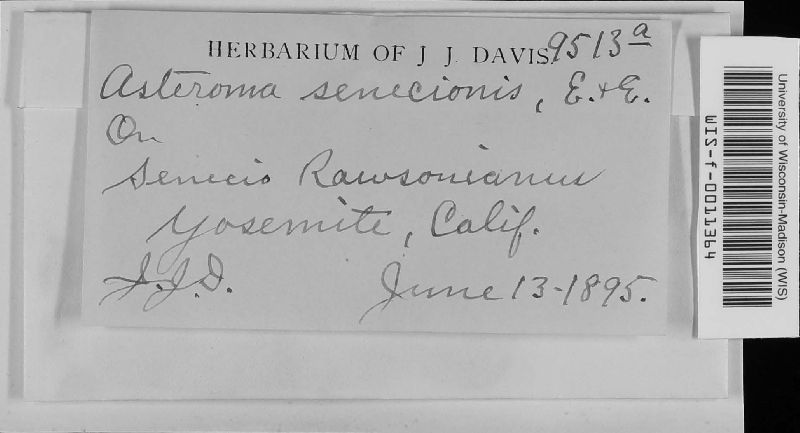 HERBARIUM OF J J DAVIS. 9513a
Asteroma senecionis, E. & E.
On
Senecio Rawsonianus
Yosemite, Calif.
J.J.D. June 13-1895.
University of Wisconsin-Madison (WIS)
WIS-f-0011364